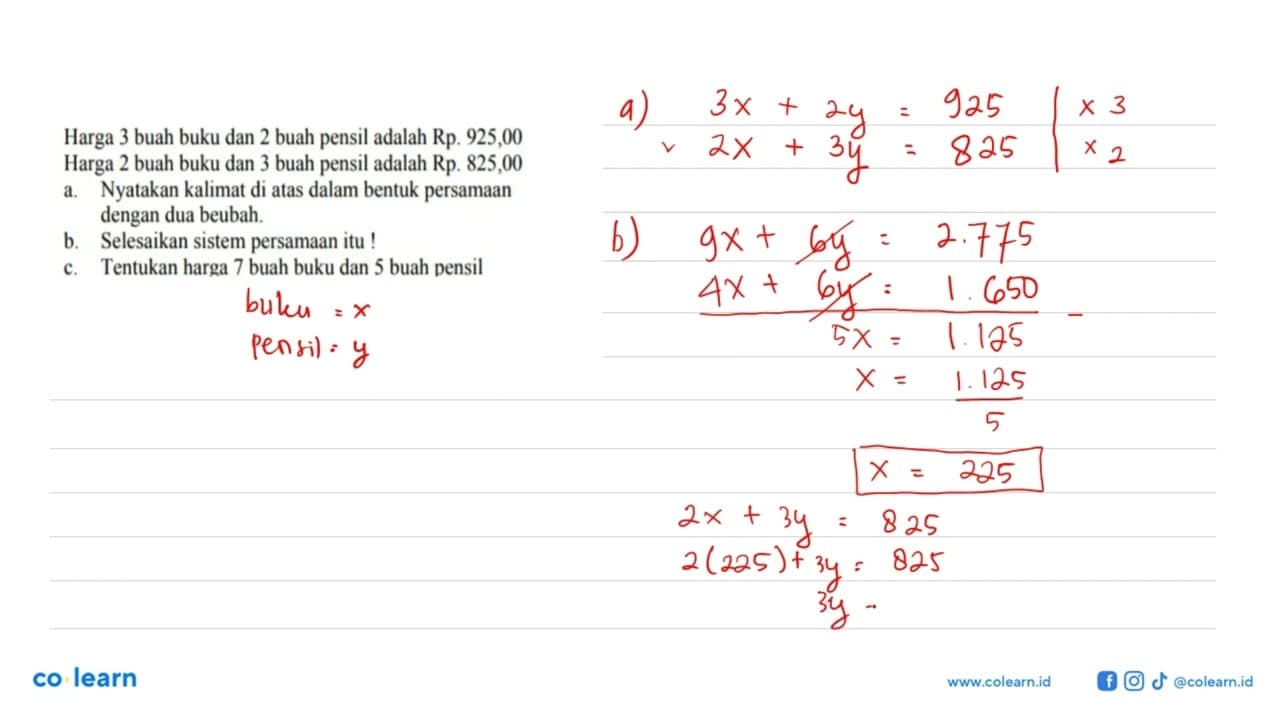 Harga 3 buah buku dan 2 buah pensil adalah Rp. 925,00
Harga 2 buah buku dan 3 buah pensil adalah Rp. 825,00
a. Nyatakan kalimat di atas dalam bentuk persamaan
dengan dua beubah.
b. Selesaikan sistem persamaan itu !
c. Tentukan harga 7 buah buku dan 5 buah pensil
buku = x
pensil = y
a) 3x + 2y = 925 | x 3
2x + 3y = 825 | x 2
b) 9x + 6y = 2.775
4x + 6y = 1.650 -
5x = 1.125
x = 1.125
5
x = 225
2x + 3y = 825
2(225) + 3y = 825
3y -
co learn
www.colearn.id
@colearn.id